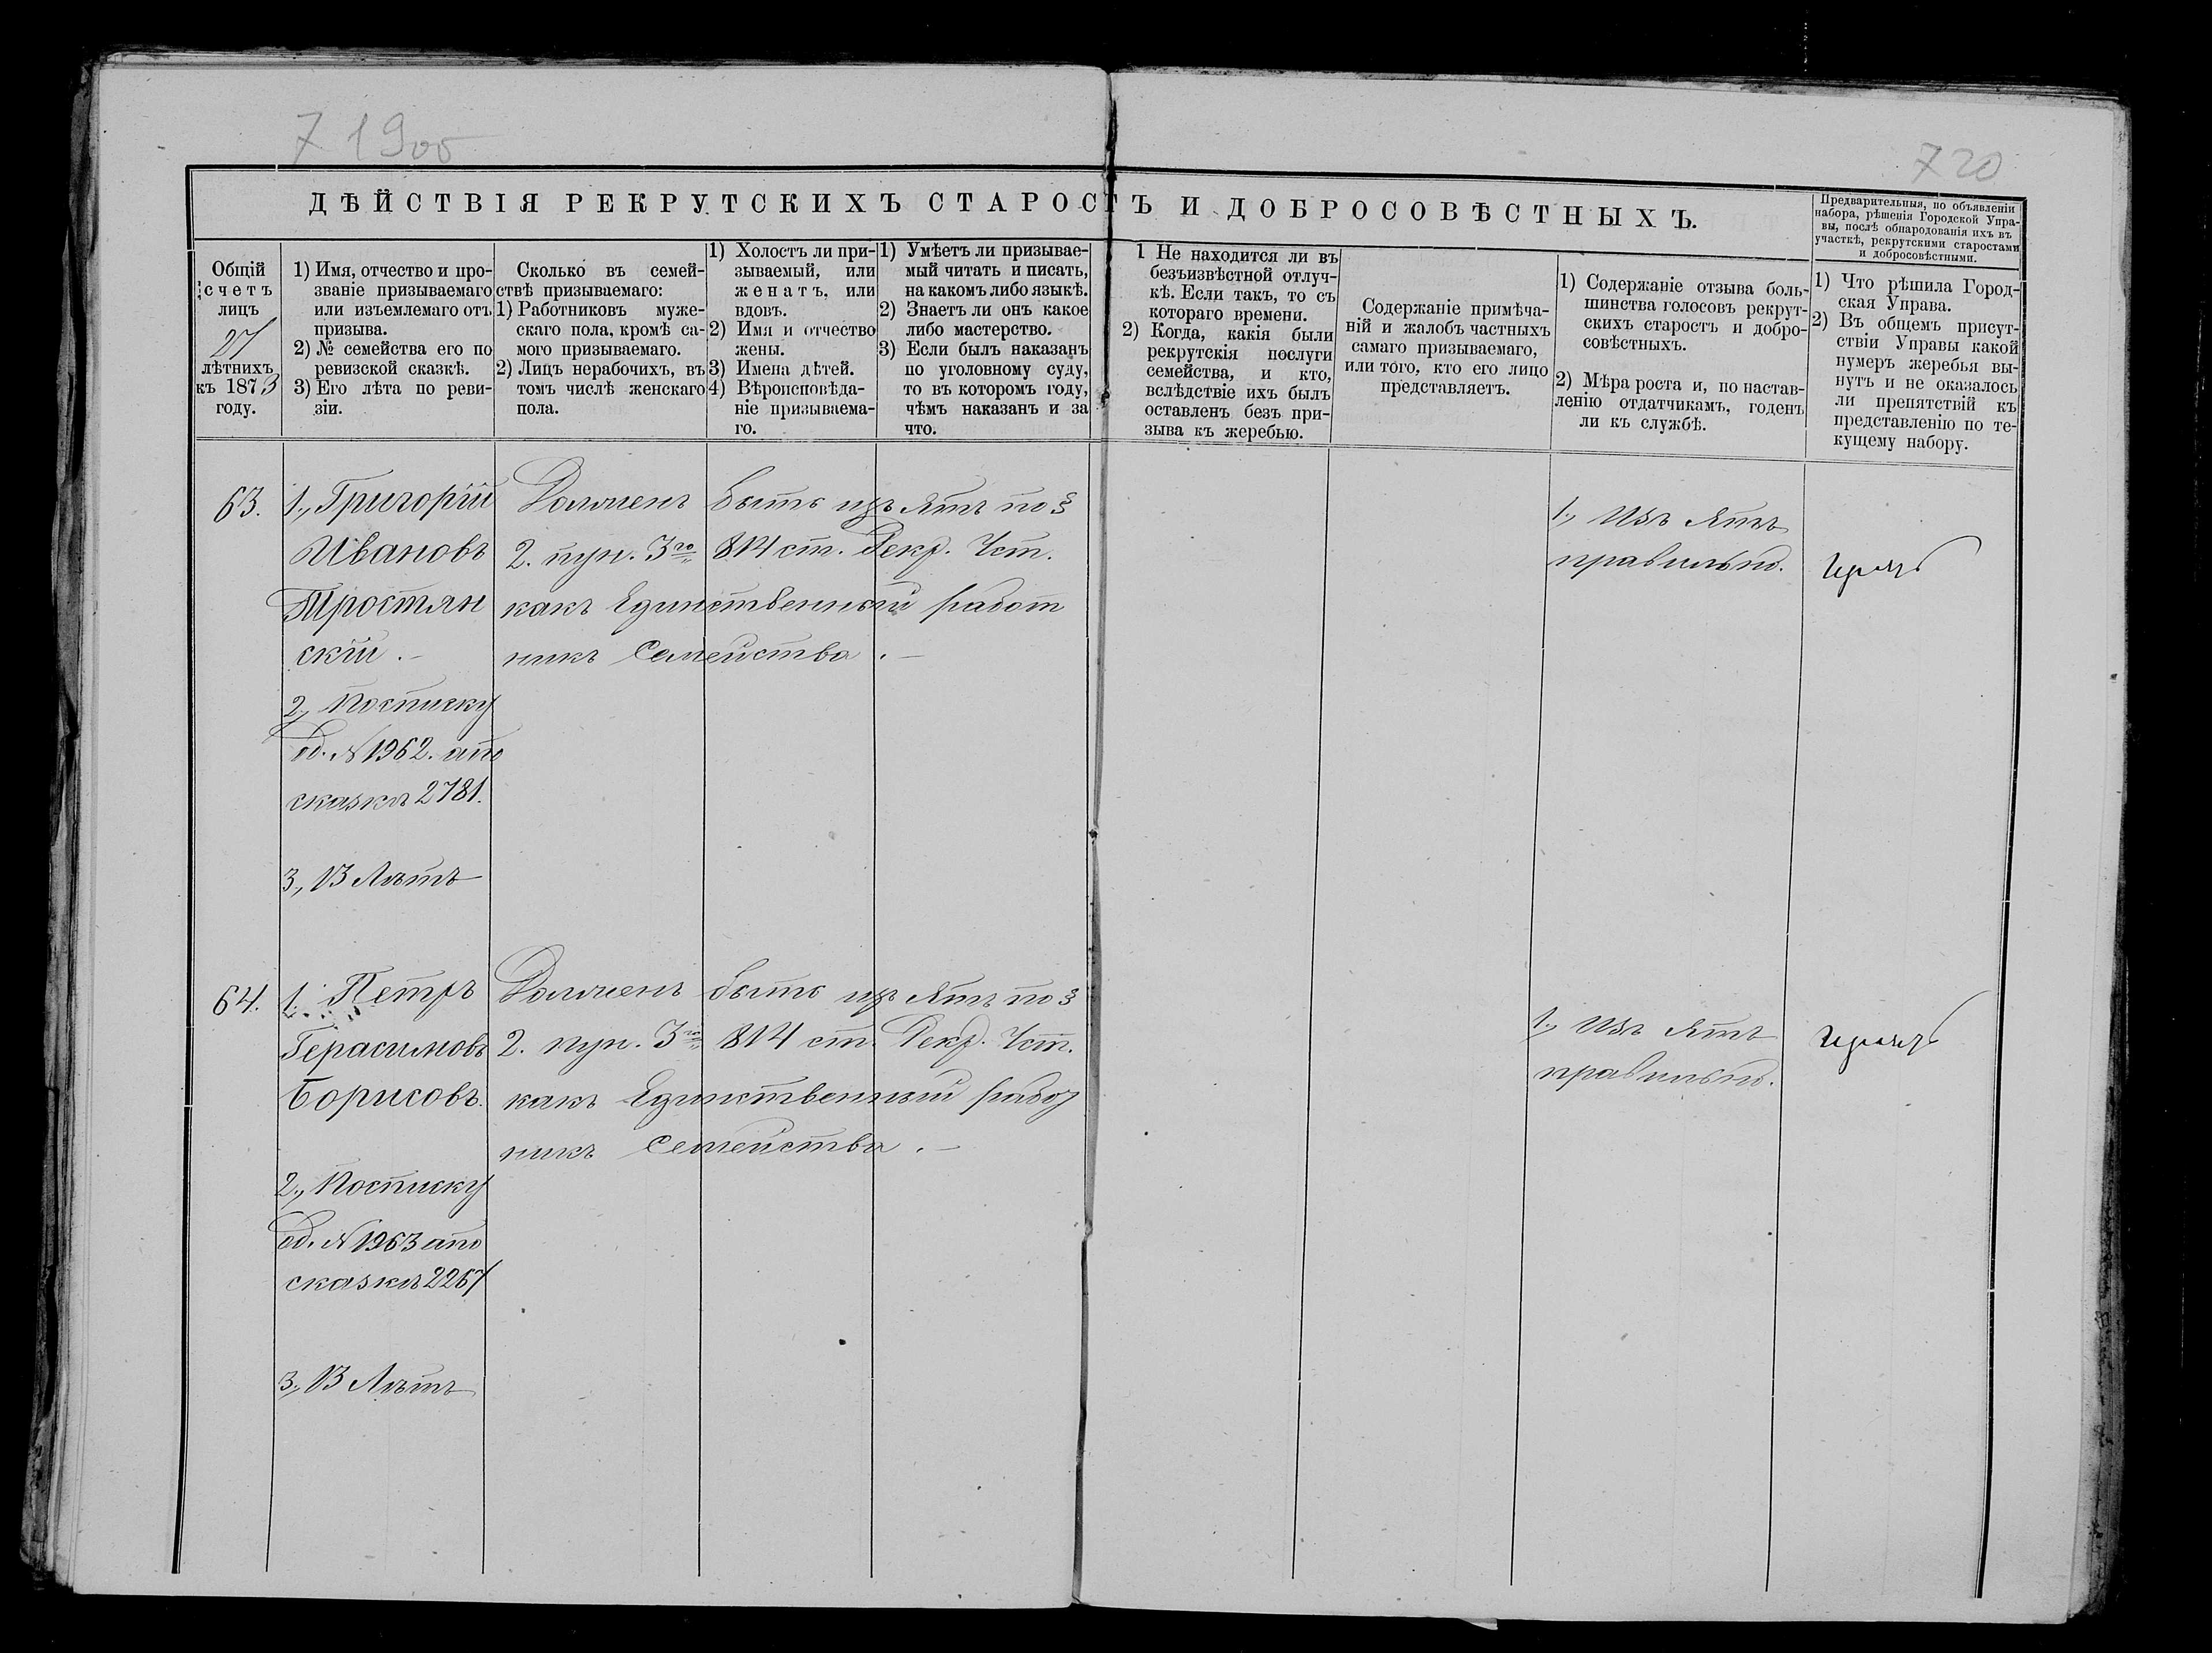 719об
720
ДѢЙСТВІЯ РЕКРУТСКИХЪ СТАРОСТЪ И ДОБРОСОВѢСТНЫХЪ.
Предварительныя, по объявленіи
набора, рѣшенія Городской Упра-
вы, послѣ обнародованія ихъ въ
участкѣ, рекрутскими старостами
и добросовѣстными.
Общій
счетъ
лицъ
27
лѣтнихъ
къ 1873
году.
1) Имя, отчество и про-
званіе призываемаго
или изъемлемаго отъ
призыва.
2) № семейства его по
ревизской сказкѣ.
3) Его лѣта по реви-
зіи.
Сколько въ семей-
ствѣ призываемаго:
1) Работниковъ муже-
скаго пола, кромѣ са-
мого призываемаго.
2) Лицъ нерабочихъ, въ
томъ числѣ женскаго
пола.
1) Холостъ ли при-
зываемый, или
женатъ, или
вдовъ.
2) Имя и отчество
жены.
3) Имена дѣтей.
4) Вѣроисповѣда-
ніе призываема-
го.
1) Умѣетъ ли призывае-
мый читать и писать,
на какомъ либо языкѣ.
2) Знаетъ ли онъ какое
либо мастерство.
3) Если былъ наказанъ
по уголовному суду,
то въ которомъ году,
чѣмъ наказанъ и за
что.
1 Не находится ли въ
безъизвѣстной отлуч-
кѣ. Если такъ, то съ
котораго времени.
2) Когда, какія были
рекрутскія послуги
семейства, и кто,
вслѣдствіе ихъ былъ
оставленъ безъ при-
зыва къ жеребью.
Содержаніе примѣча-
ній и жалобъ частныхъ
самаго призываемаго,
или того, кто его лицо
представляетъ.
1) Содержаніе отзыва боль-
шинства голосовъ рекрут-
скихъ старостъ и добро-
совѣстныхъ.
2) Мѣра роста и, по настав-
ленію отдатчикамъ, годенъ
ли къ службѣ.
1) Что рѣшила Город-
ская Управа.
2) Въ общемъ присут-
ствіи Управы какой
нумеръ жеребья вы-
нутъ и не оказалось
ли препятствій къ
представленію по те-
кущему набору.
63.
1., Григорій
Ивановъ
Тростян
скій .-
2., Посписку
об. № 1962. апо
сказкѣ 2781.
3., 13 Лѣтъ
Долженъ быть изъ ятъ по §
2. пун. 3го 814 ст. Рекр. Уст.
какъ Единственный работ
никъ Семейства .-
1., Изъ ятъ
правильно.
64.
1. Петръ
Герасимовъ
Борисовъ.
2., Посписку
об. № 1963 апо
сказкѣ 2267
3., 13 Лѣтъ
Долженъ быть изъ ятъ по §
2. пун. 3го 814 ст. Рекр. Уст.
какъ Единственный работ
никъ Семейства .-
1., Изъ ятъ
правильно.